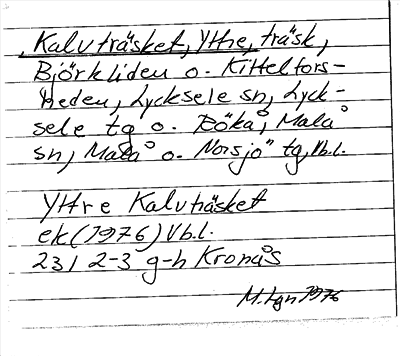 Kalvträsket, Yttre, träsk,
Björkliden o. Kittelfors-
heden, Lycksele sn, Lyck-
sele tg o. Böka, Malå
sn, Malå o. Norsjö tg, Vb.l.
Yttre Kalvträsket
ek (1976) Vb.l.
23I 2-3 g-h Kronås
M.Lgn 1976